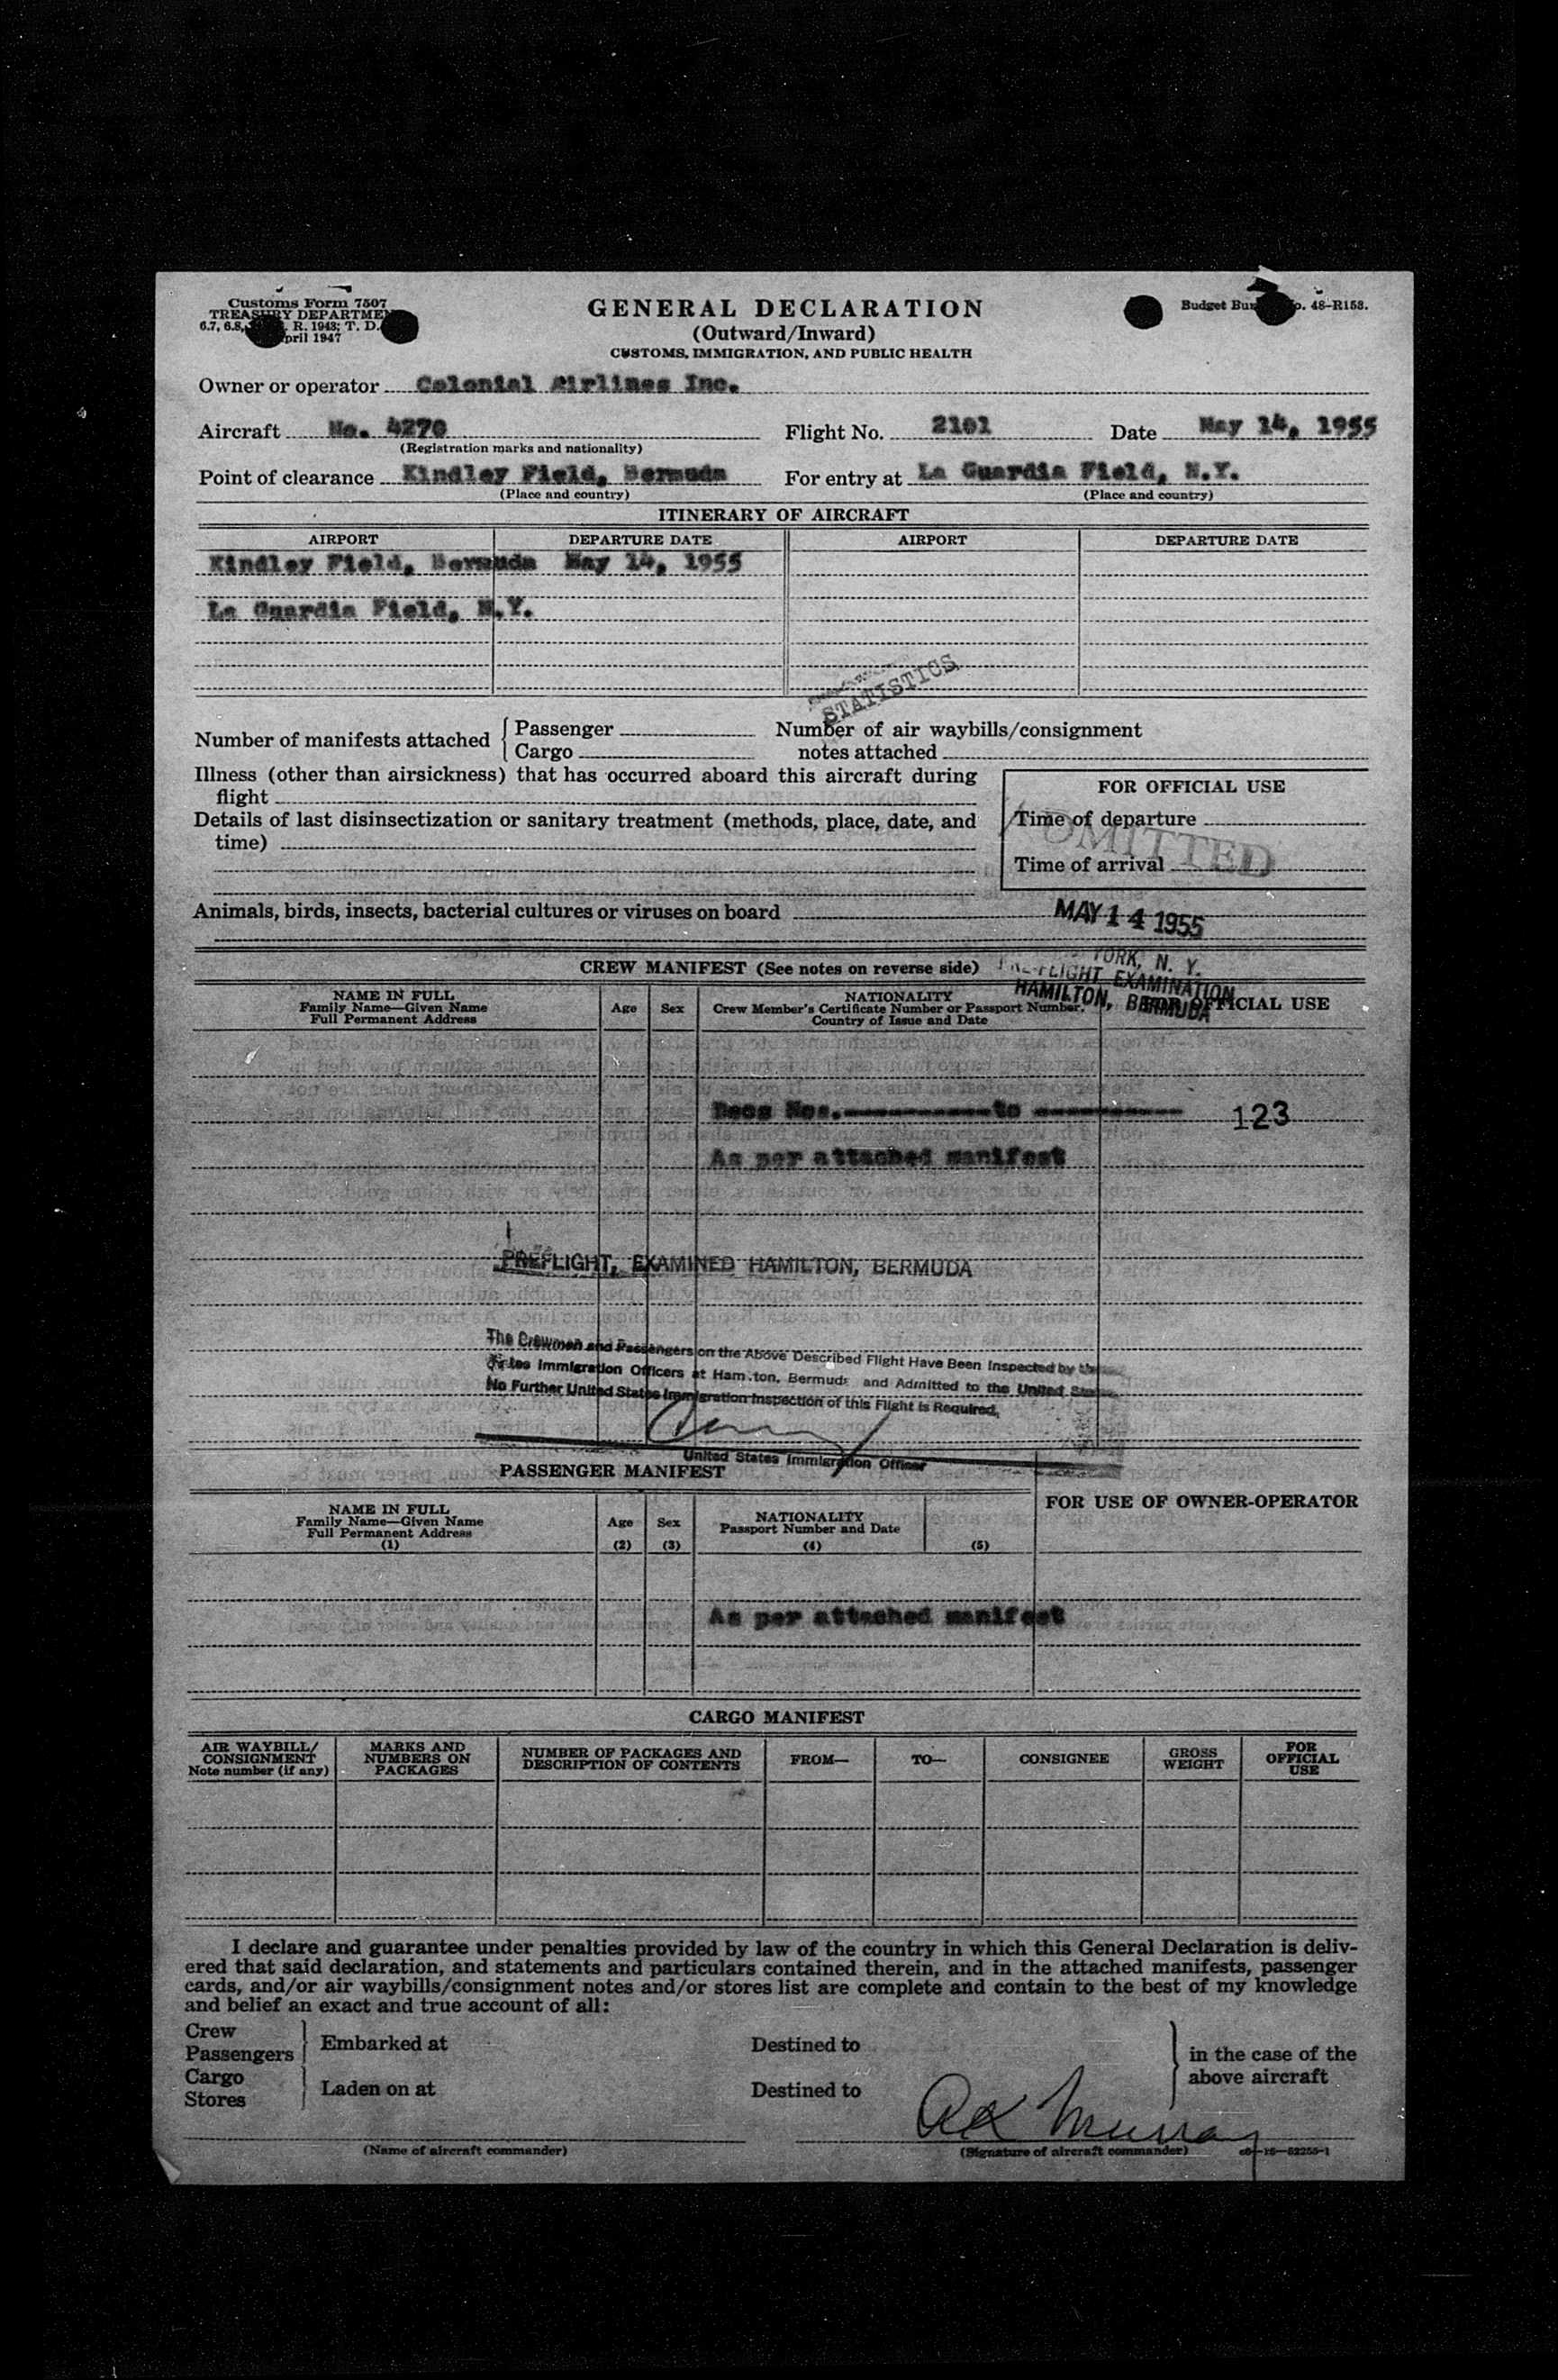 Customs Form 7507
TREASURY DEPARTMENT
6.7, 6.8, R. 1943; T. D.
April 1947
GENERAL DECLARATION
(Outward/Inward)
CUSTOMS, IMMIGRATION, AND PUBLIC HEALTH
Budget Bureau No. 48-R153.
Owner or operator Colonial Airlines Inc.
Aircraft No. 4270 Flight No. 2101 Date May 14, 1955
(Registration marks and nationality)
Point of clearance Kindley Field, Bermuda For entry at La Guardia Field, N.Y.
(Place and country) (Place and country)
ITINERARY OF AIRCRAFT
AIRPORT DEPARTURE DATE AIRPORT DEPARTURE DATE
Kindley Field, Bermuda May 14, 1955
La Guardia Field, N.Y.
STATISTICS
Number of manifests attached { Passenger
Cargo
Number of air waybills/consignment
notes attached
Illness (other than airsickness) that has occurred aboard this aircraft during
flight
Details of last disinsectization or sanitary treatment (methods, place, date, and
time)
FOR OFFICIAL USE
Time of departure
ADMITTED
Time of arrival
Animals, birds, insects, bacterial cultures or viruses on board
MAY 14 1955
YORK, N. Y.
PRE-FLIGHT EXAMINATION
HAMILTON, BERMUDA
CREW MANIFEST (See notes on reverse side)
NAME IN FULL
Family Name—Given Name
Full Permanent Address
Age
Sex
NATIONALITY
Crew Member's Certificate Number or Passport Number,
Country of Issue and Date
FOR OFFICIAL USE
Decs Nos. ---------- to ----------
123
As per attached manifest
PREFLIGHT, EXAMINED HAMILTON, BERMUDA
The Crewmen and Passengers on the Above Described Flight Have Been Inspected by
States Immigration Officers at Hamilton, Bermuda and Admitted to the United States
No Further United States Immigration Inspection of this Flight is Required.
United States Immigration Officer
PASSENGER MANIFEST
FOR USE OF OWNER-OPERATOR
NAME IN FULL
Family Name—Given Name
Full Permanent Address
(1)
Age
(2)
Sex
(3)
NATIONALITY
Passport Number and Date
(4)
(5)
As per attached manifest
CARGO MANIFEST
AIR WAYBILL/
CONSIGNMENT
Note number (if any)
MARKS AND
NUMBERS ON
PACKAGES
NUMBER OF PACKAGES AND
DESCRIPTION OF CONTENTS
FROM—
TO—
CONSIGNEE
GROSS
WEIGHT
FOR
OFFICIAL
USE
I declare and guarantee under penalties provided by law of the country in which this General Declaration is deliv-
ered that said declaration, and statements and particulars contained therein, and in the attached manifests, passenger
cards, and/or air waybills/consignment notes and/or stores list are complete and contain to the best of my knowledge
and belief an exact and true account of all:
Crew
Passengers } Embarked at Destined to
Cargo
Stores } Laden on at Destined to
} in the case of the
above aircraft
AK Murray
(Name of aircraft commander) (Signature of aircraft commander)